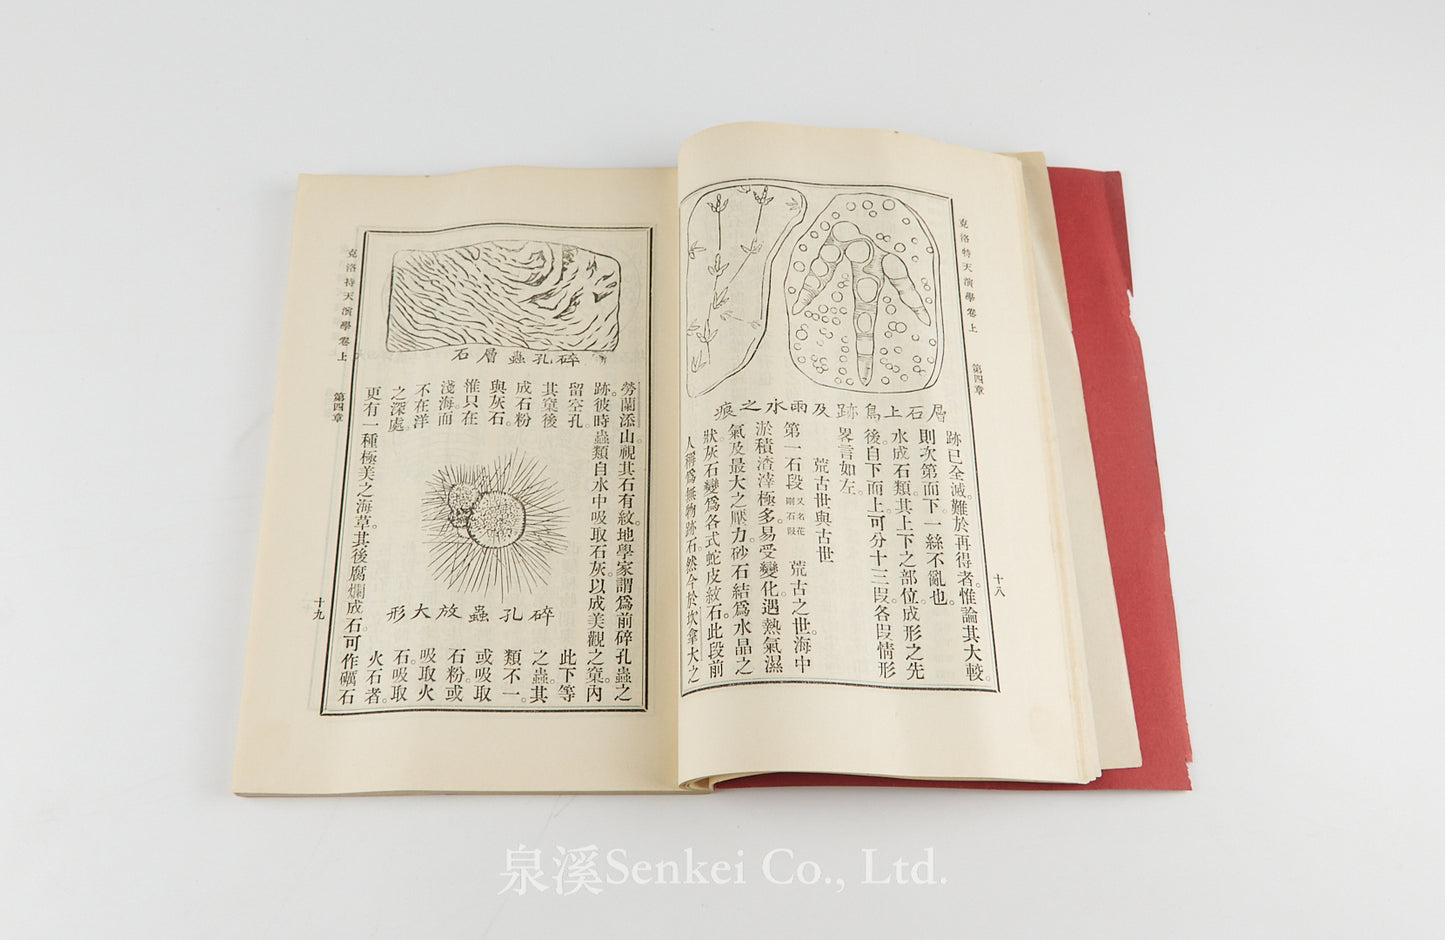 克洛特天演學卷上
第四章
十八
痕之水雨及跡鳥上石層
跡已全滅。難於再得者。惟論其大較。
則次第而下。一絲不亂也。
水成石類。其上下之部位。成形之先
後。自下而上。可分十三段。各段情形
畧言如左。
荒古世與古世
第一石段 又名花剛石段 荒古之世。海中
淤積渣滓極多。易受變化。遇熱氣濕
氣及最大之壓力。砂石結爲水晶之
狀。灰石變爲各式蛇皮紋石。此段前
人稱爲無物跡石。然今於坎拿大之
克洛特天演學卷上
第四章
十九
石層蟲孔碎
勞蘭添山。視其石有紋。地學家謂爲前碎孔蟲之
跡。彼時蟲類自水中吸取石灰。以成美觀之窠。內
留空孔
其窠後
成石粉
與灰石。
惟只在
淺海。而
不在洋
之深處。
形大放蟲孔碎
此下等
之蟲。其
類不一。
或吸取
石粉。或
吸取火
石。吸取
火石者。
更有一種極美之海草。其後腐爛成石。可作礪石
泉溪Senkei Co., Ltd.